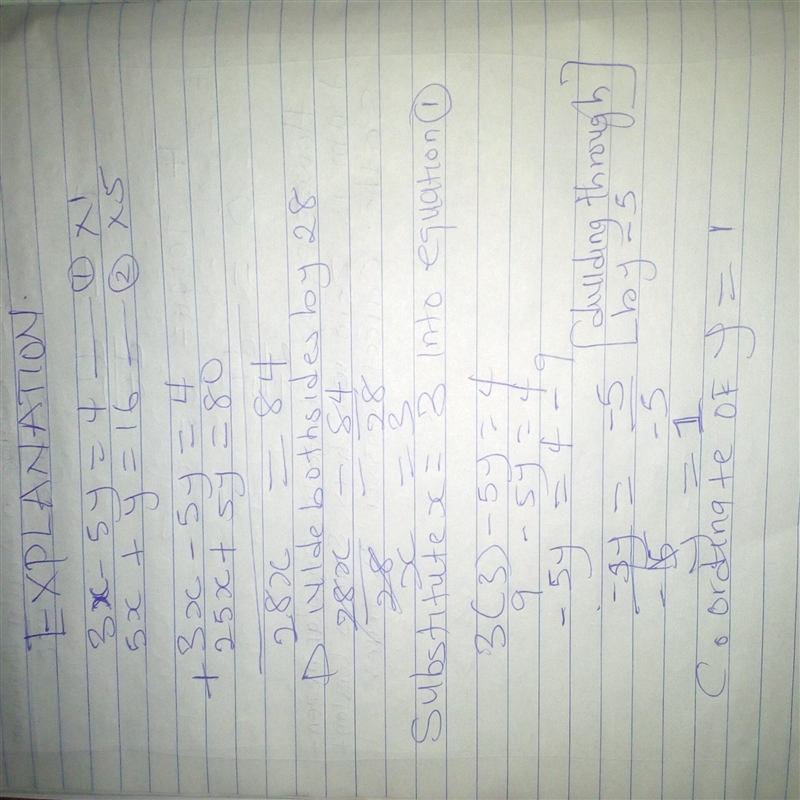 EXPLANATION.
3x - 5y = 4 — ① x1
5x + y = 16 — ② x5
+ 3x - 5y = 4
25x + 5y = 80
28x = 84
Divide both sides by 28
28x = 84
28 28
x = 3
Substitute x = 3 into equation ①
3(3) - 5y = 4
9 - 5y = 4
-5y = 4 - 9
-5y = -5 [dividing through
-5 -5 by -5]
y = 1
Coordinate OF y = 1